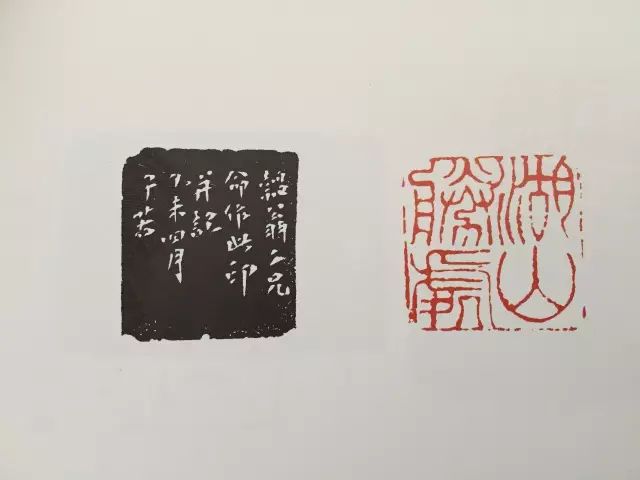 翁大兄
命作此印
并記
丁未四月
湖山
勝處